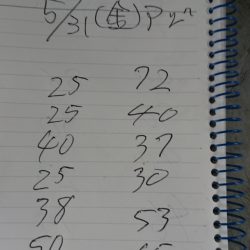 5/31(金)
25 72
25 40
40 37
25 30
38 53